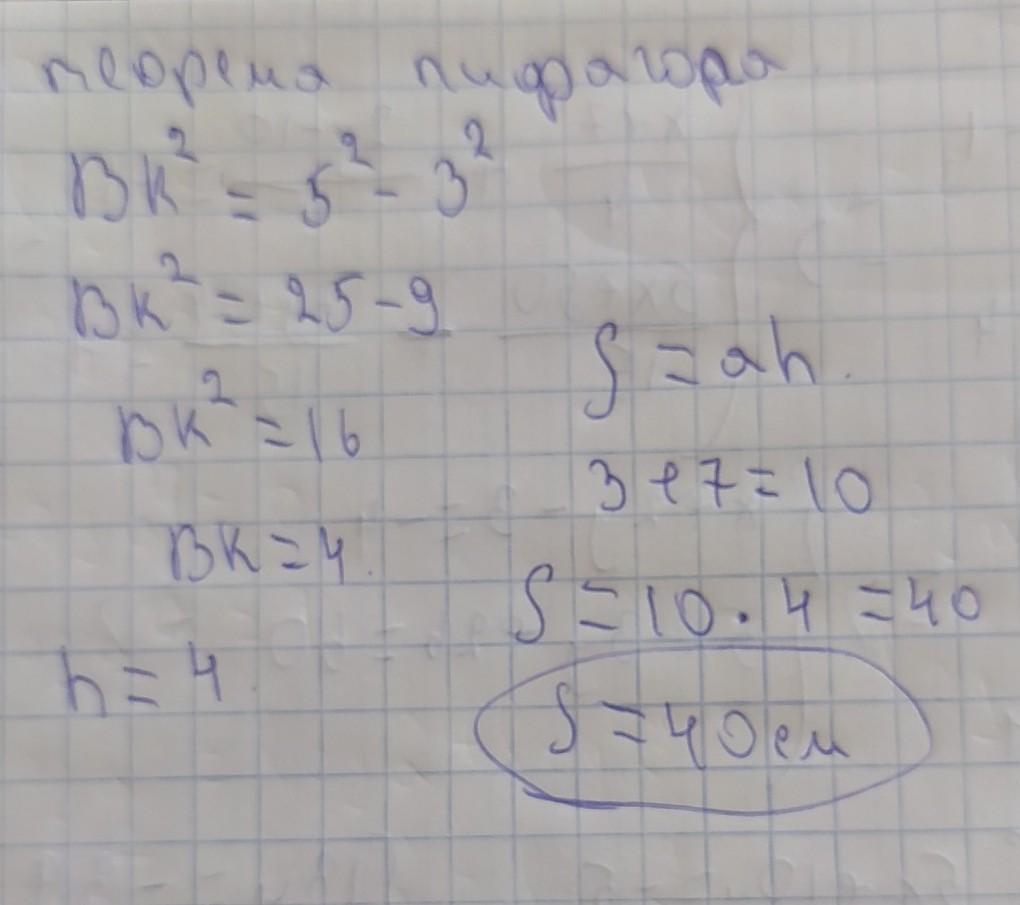 теорема пифагора
BK² = 5² - 3²
BK² = 25 - 9
BK² = 16
BK = 4.
h = 4
S = ah.
3 + 7 = 10
S = 10 · 4 = 40
S = 40 см